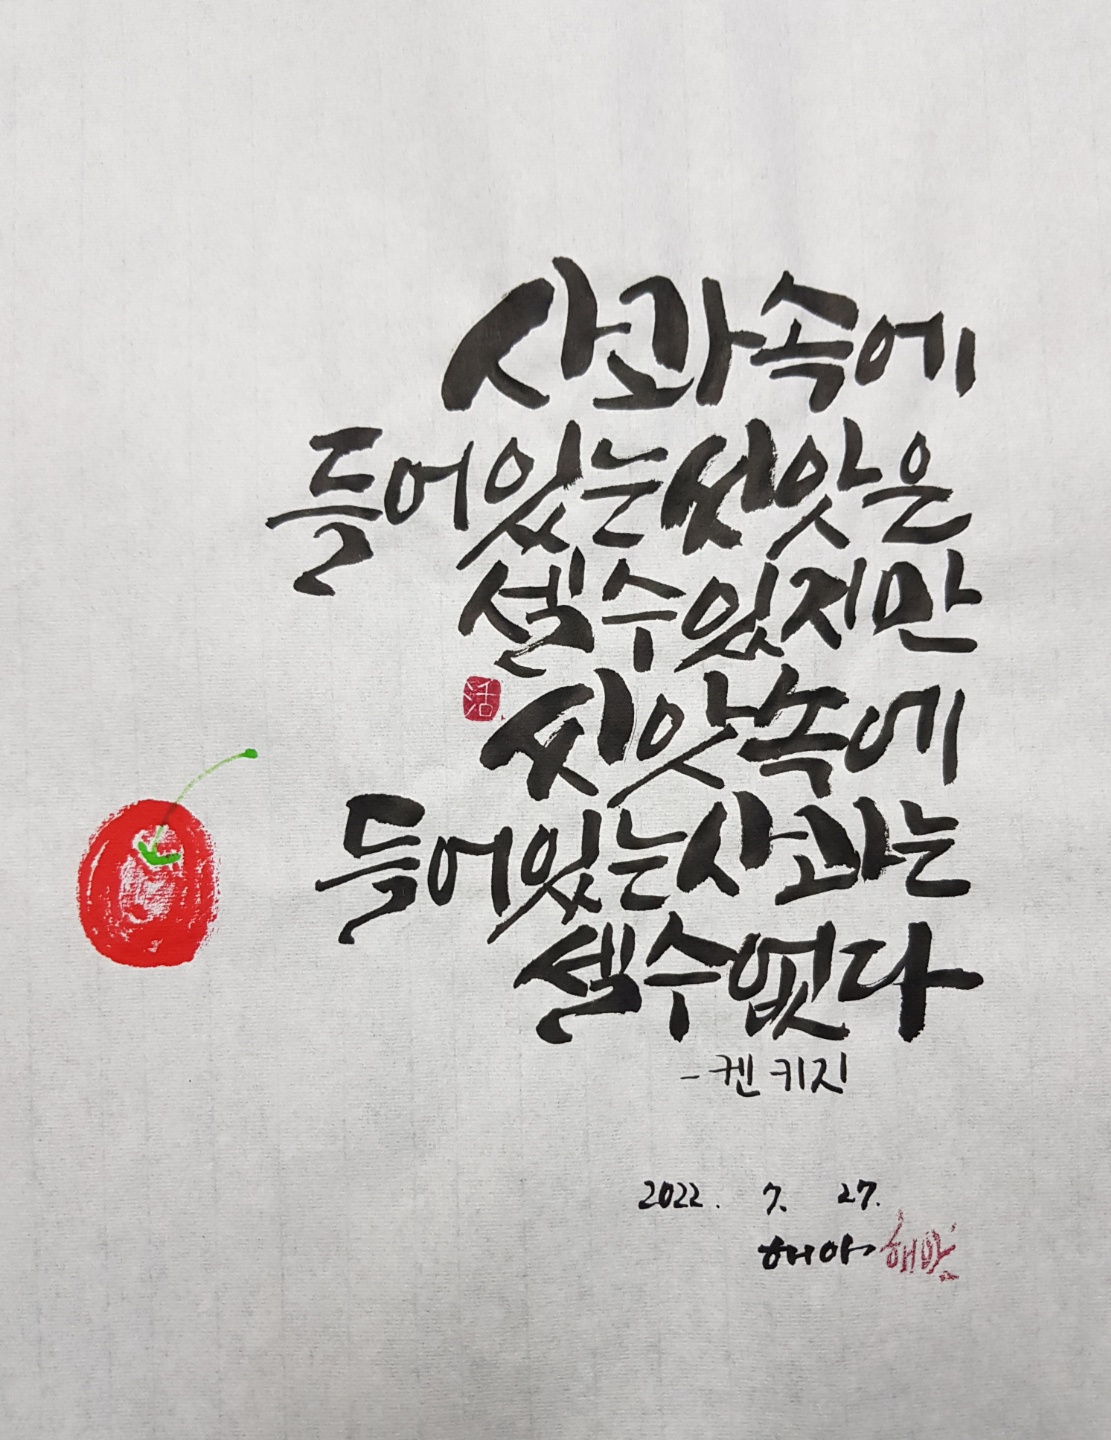 사과속에
들어있는 씨앗은
셀수있지만
씨앗속에
들어있는 사과는
셀수없다
- 켄 키지
2022. 7. 27.
해야